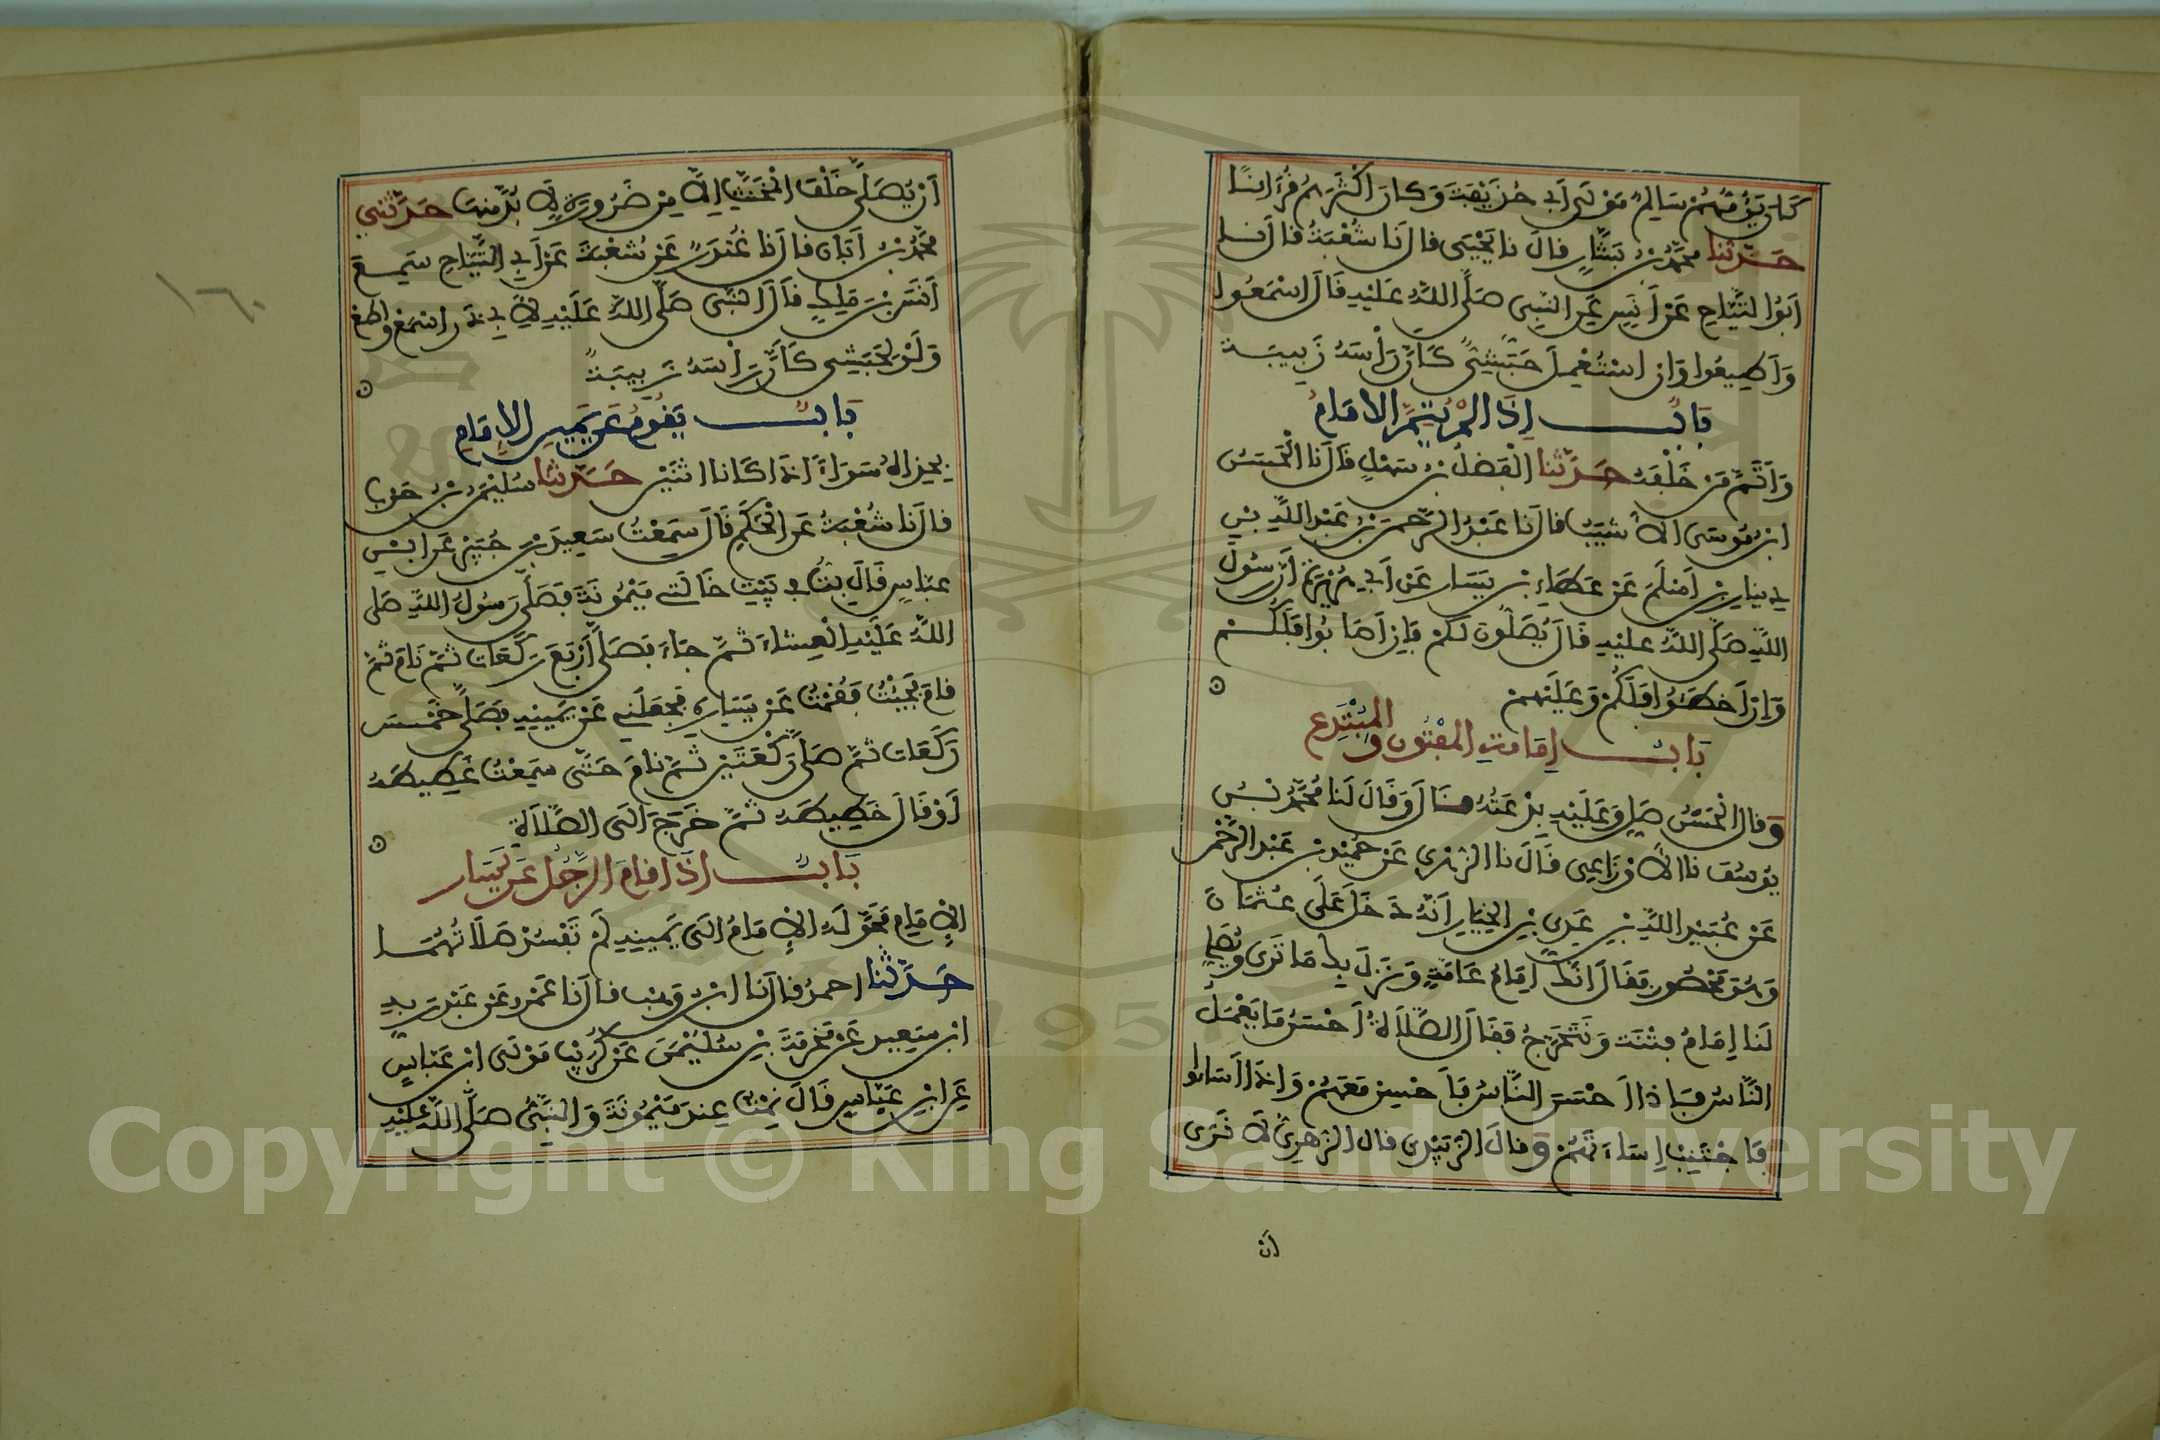 كان يؤمهم سالم مولى أبي حذيفة وكان أكثرهم قرءانا
حدثنا محمد بن بشار قال نا يحيى قال نا شعبة قال نا
أبو التياح عن أنس عن النبي صلى الله عليه قال اسمعوا
وأطيعوا وإن استعمل حبشي كأن رأسه زبيبة
باب إذا لم يتم الإمام
وأتم من خلفه حدثنا الفضل بن سهل قال نا الحسن
ابن موسى الأشيب قال نا عبد الرحمن بن عبد الله بن
دينار بن أسلم عن عطاء بن يسار عن أبي هريرة أن رسول
الله صلى الله عليه قال يصلون لكم فإن أصابوا فلكم
وإن أخطئوا فلكم وعليهم
باب إمامة المفتون والمبتدع
وقال الحسن صل وعليه بدعته قال وقال لنا محمد بن
يوسف نا الأوزاعي قال نا الزهري عن حميد بن عبد الرحمن
عن عبيد الله بن عدي بن الخيار أنه دخل على عثمان
وهو محصور فقال انك إمام عامة ونزل بك ما ترى ويصلي
لنا إمام فتنة ونتحرج فقال الصلاة أحسن ما يعمل
الناس فإذا أحسن الناس فأحسن معهم وإذا أساءوا
فاجتنب إساءتهم وقال الزبيدي قال الزهري لا نرى
أن
أن يصلى خلف المخنث إلا من ضرورة لا بد منها حدثني
محمد بن أبان قال نا غندر عن شعبة عن أبي التياح سمع
أنس بن مالك قال النبي صلى الله عليه لأبي ذر اسمع وأطع
ولو لحبشي كأن رأسه زبيبة
باب يقوم عن يمين الإمام
بحذائه سواء إذا كانا اثنين حدثنا سليمن بن حرب
قال نا شعبة عن الحكم قال سمعت سعيد بن جبير عن ابن
عباس قال بت في بيت خالتي ميمونة فصلى رسول الله صلى
الله عليه العشاء ثم جاء فصلى أربع ركعات ثم نام ثم
قام فجئت فقمت عن يساره فجعلني عن يمينه فصلى خمس
ركعات ثم صلى ركعتين ثم نام حتى سمعت غطيطه
أو قال خطيطه ثم خرج إلى الصلاة
باب إذا قام الرجل عن يسار
الإمام فحوله الإمام إلى يمينه لم تفسد صلاتهما
حدثنا أحمد قال نا ابن وهب قال نا عمرو عن عبد ربه
ابن سعيد عن مخرمة بن سليمن عن كريب مولى ابن عباس
عن ابن عباس قال نمت عند ميمونة والنبي صلى الله عليه
١٦٠
1957
Copyright © King Saud University